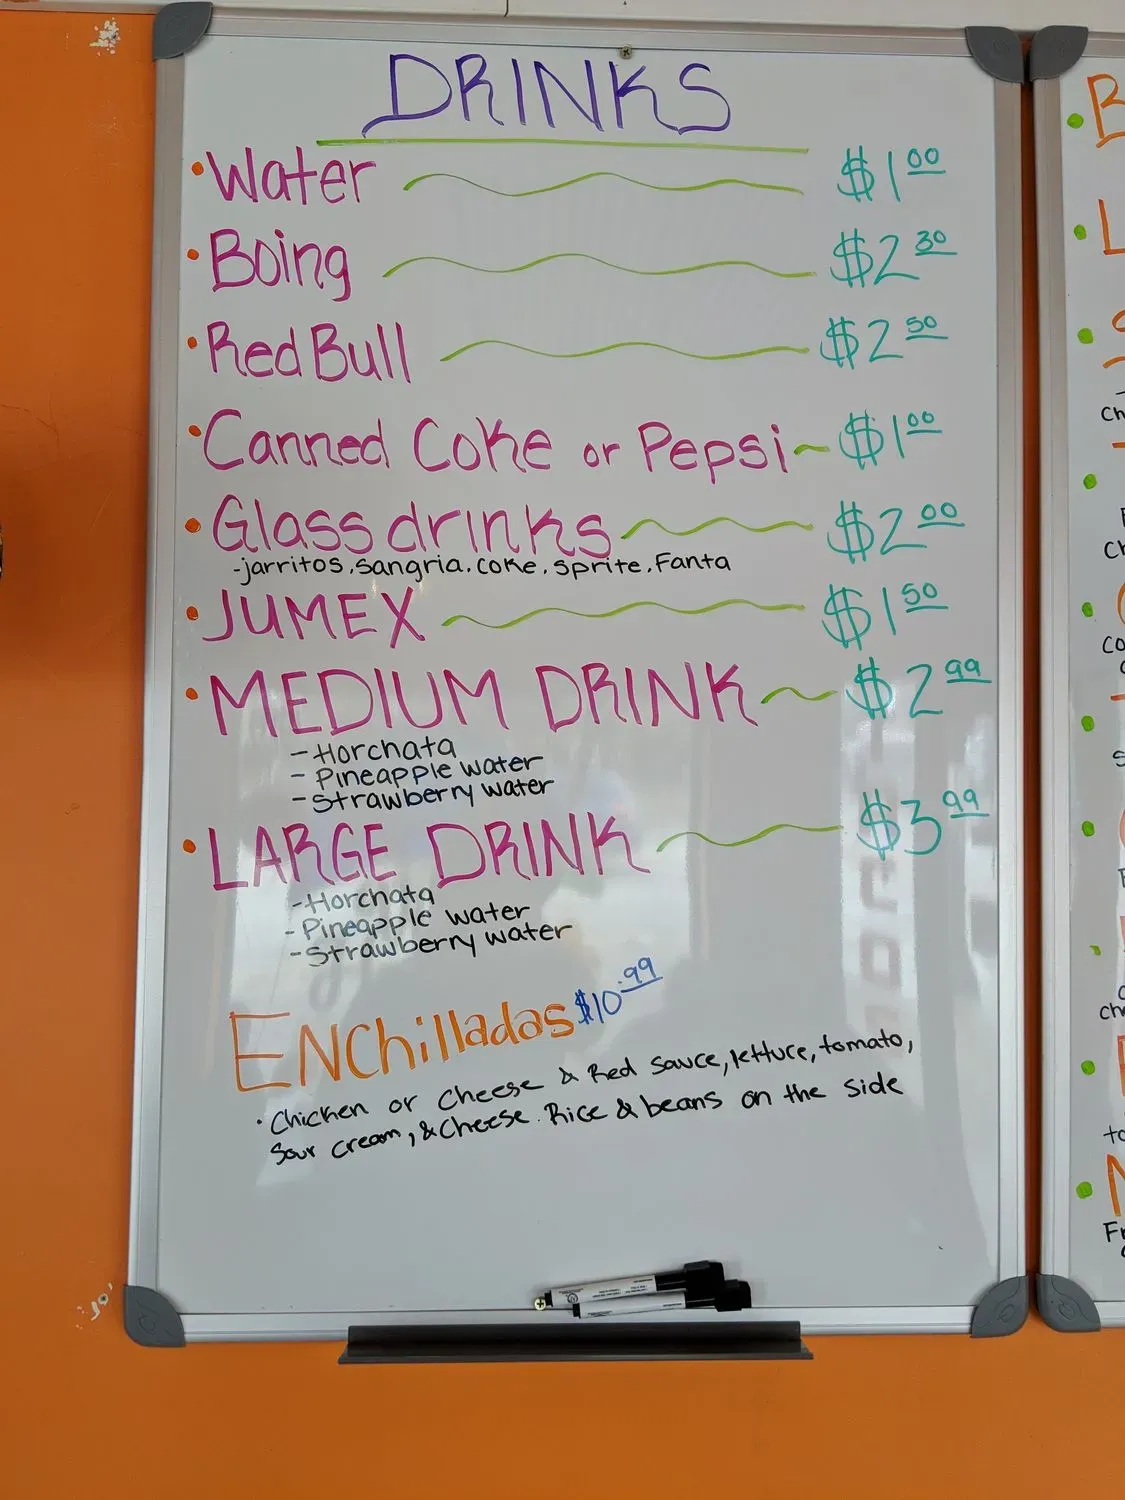 DRINKS
• Water $1.00
• Boing $2.30
• Red Bull $2.50
• Canned Coke or Pepsi ~ $1.00
• Glass drinks $2.00
-jarritos, sangria, coke, sprite, Fanta
• JUMEX $1.50
• MEDIUM DRINK ~ $2.99
- Horchata
- Pineapple water
- Strawberry water
• LARGE DRINK $3.99
- Horchata
- Pineapple water
- Strawberry water
ENChilladas $10.99
• Chicken or Cheese & Red sauce, lettuce, tomato,
Sour cream, & Cheese. Rice & beans on the side